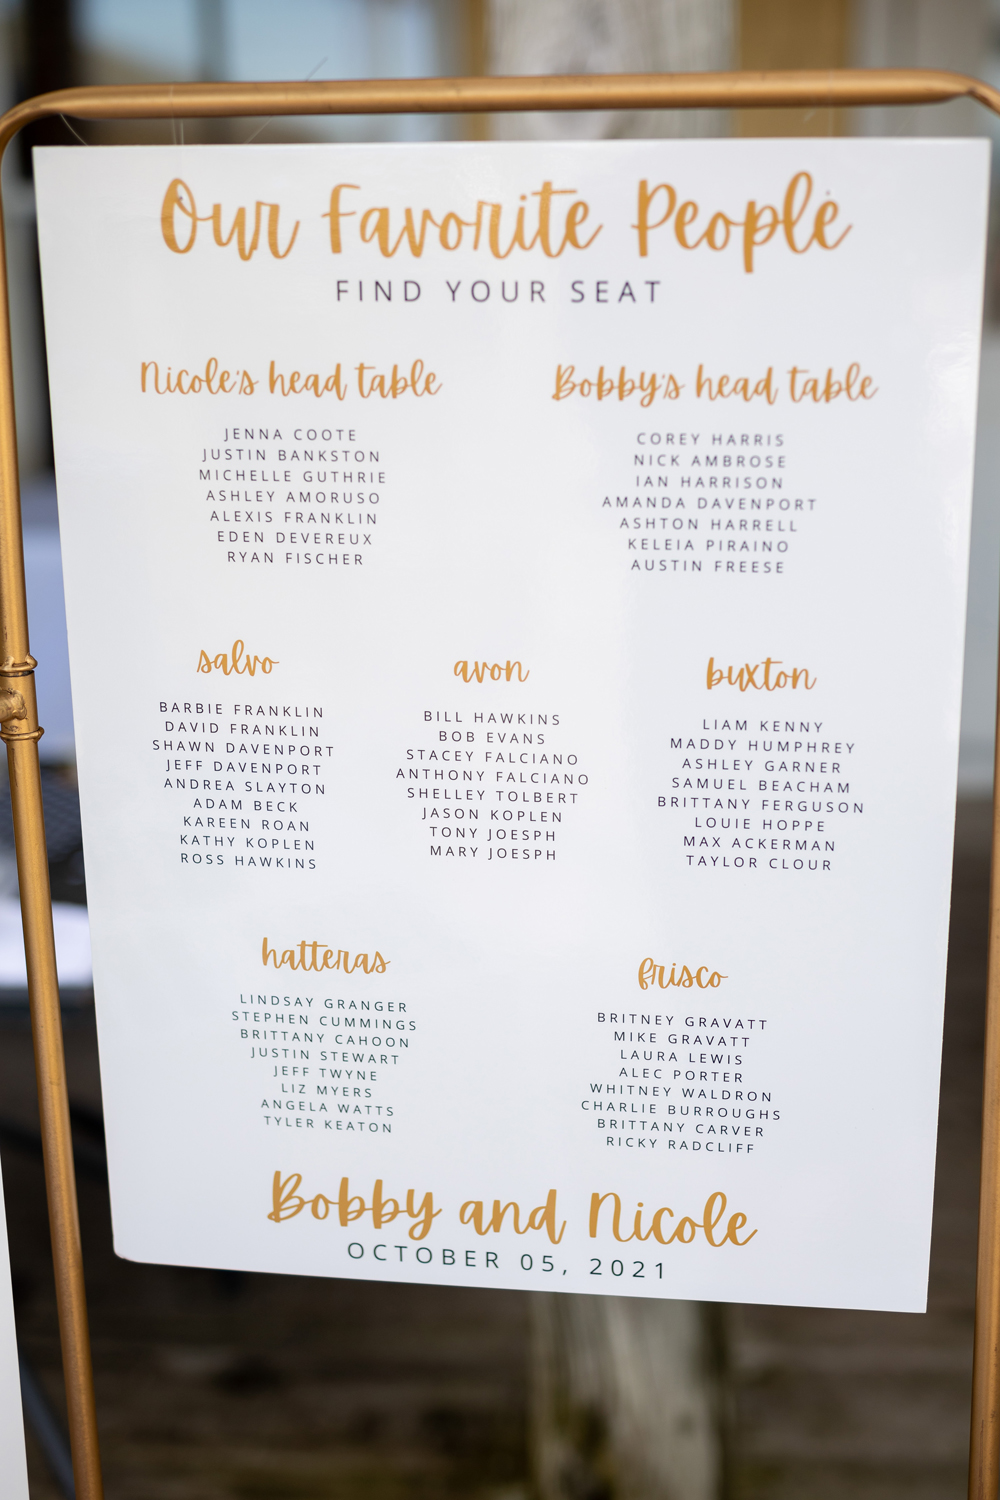 Our Favorite People
FIND YOUR SEAT
Nicole's head table
JENNA COOTE
JUSTIN BANKSTON
MICHELLE GUTHRIE
ASHLEY AMORUSO
ALEXIS FRANKLIN
EDEN DEVEREUX
RYAN FISCHER
Bobby's head table
COREY HARRIS
NICK AMBROSE
IAN HARRISON
AMANDA DAVENPORT
ASHTON HARRELL
KELEIA PIRAINO
AUSTIN FREESE
salvo
BARBIE FRANKLIN
DAVID FRANKLIN
SHAWN DAVENPORT
JEFF DAVENPORT
ANDREA SLAYTON
ADAM BECK
KAREEN ROAN
KATHY KOPLEN
ROSS HAWKINS
avon
BILL HAWKINS
BOB EVANS
STACEY FALCIANO
ANTHONY FALCIANO
SHELLEY TOLBERT
JASON KOPLEN
TONY JOESPH
MARY JOESPH
buxton
LIAM KENNY
MADDY HUMPHREY
ASHLEY GARNER
SAMUEL BEACHAM
BRITTANY FERGUSON
LOUIE HOPPE
MAX ACKERMAN
TAYLOR CLOUR
hatteras
LINDSAY GRANGER
STEPHEN CUMMINGS
BRITTANY CAHOON
JUSTIN STEWART
JEFF TWYNE
LIZ MYERS
ANGELA WATTS
TYLER KEATON
frisco
BRITNEY GRAVATT
MIKE GRAVATT
LAURA LEWIS
ALEC PORTER
WHITNEY WALDRON
CHARLIE BURROUGHS
BRITTANY CARVER
RICKY RADCLIFF
Bobby and Nicole
OCTOBER 05, 2021